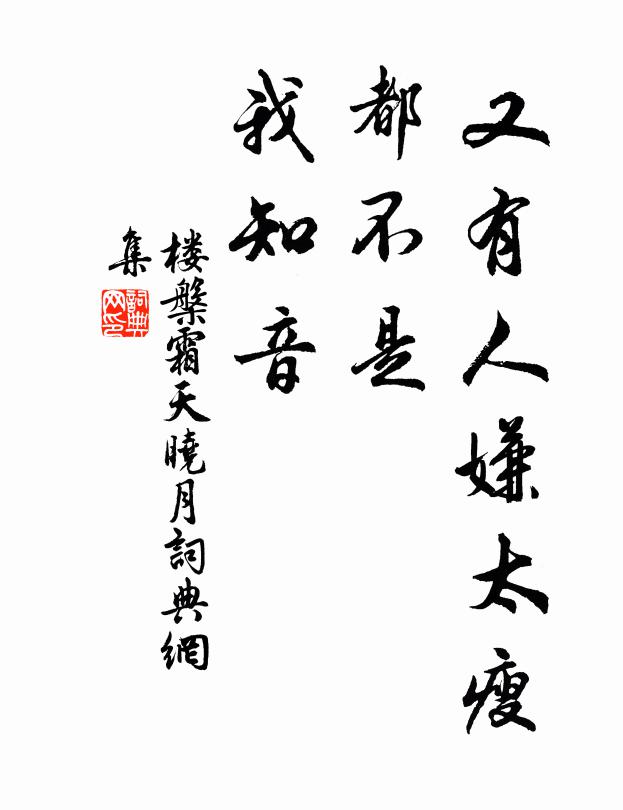 又有人嫌太瘦
都不是
我知音
楼槃霜天曉月詞典網
集
詞典
网印